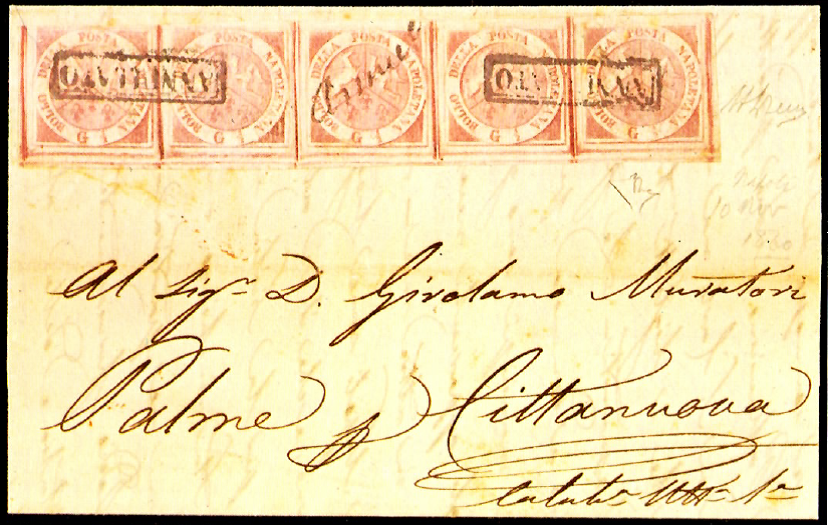 BOLLO DELLA POSTA NAPOLETANA G 1
BOLLO DELLA POSTA NAPOLETANA G 1
BOLLO DELLA POSTA NAPOLETANA G 1
BOLLO DELLA POSTA NAPOLETANA G 1
BOLLO DELLA POSTA NAPOLETANA G 1
ANNULLATO
ANNULLATO
Napoli
10 Nov
1860
Al Sigr. D. Girolamo Muratori
Palme p Cittanuova